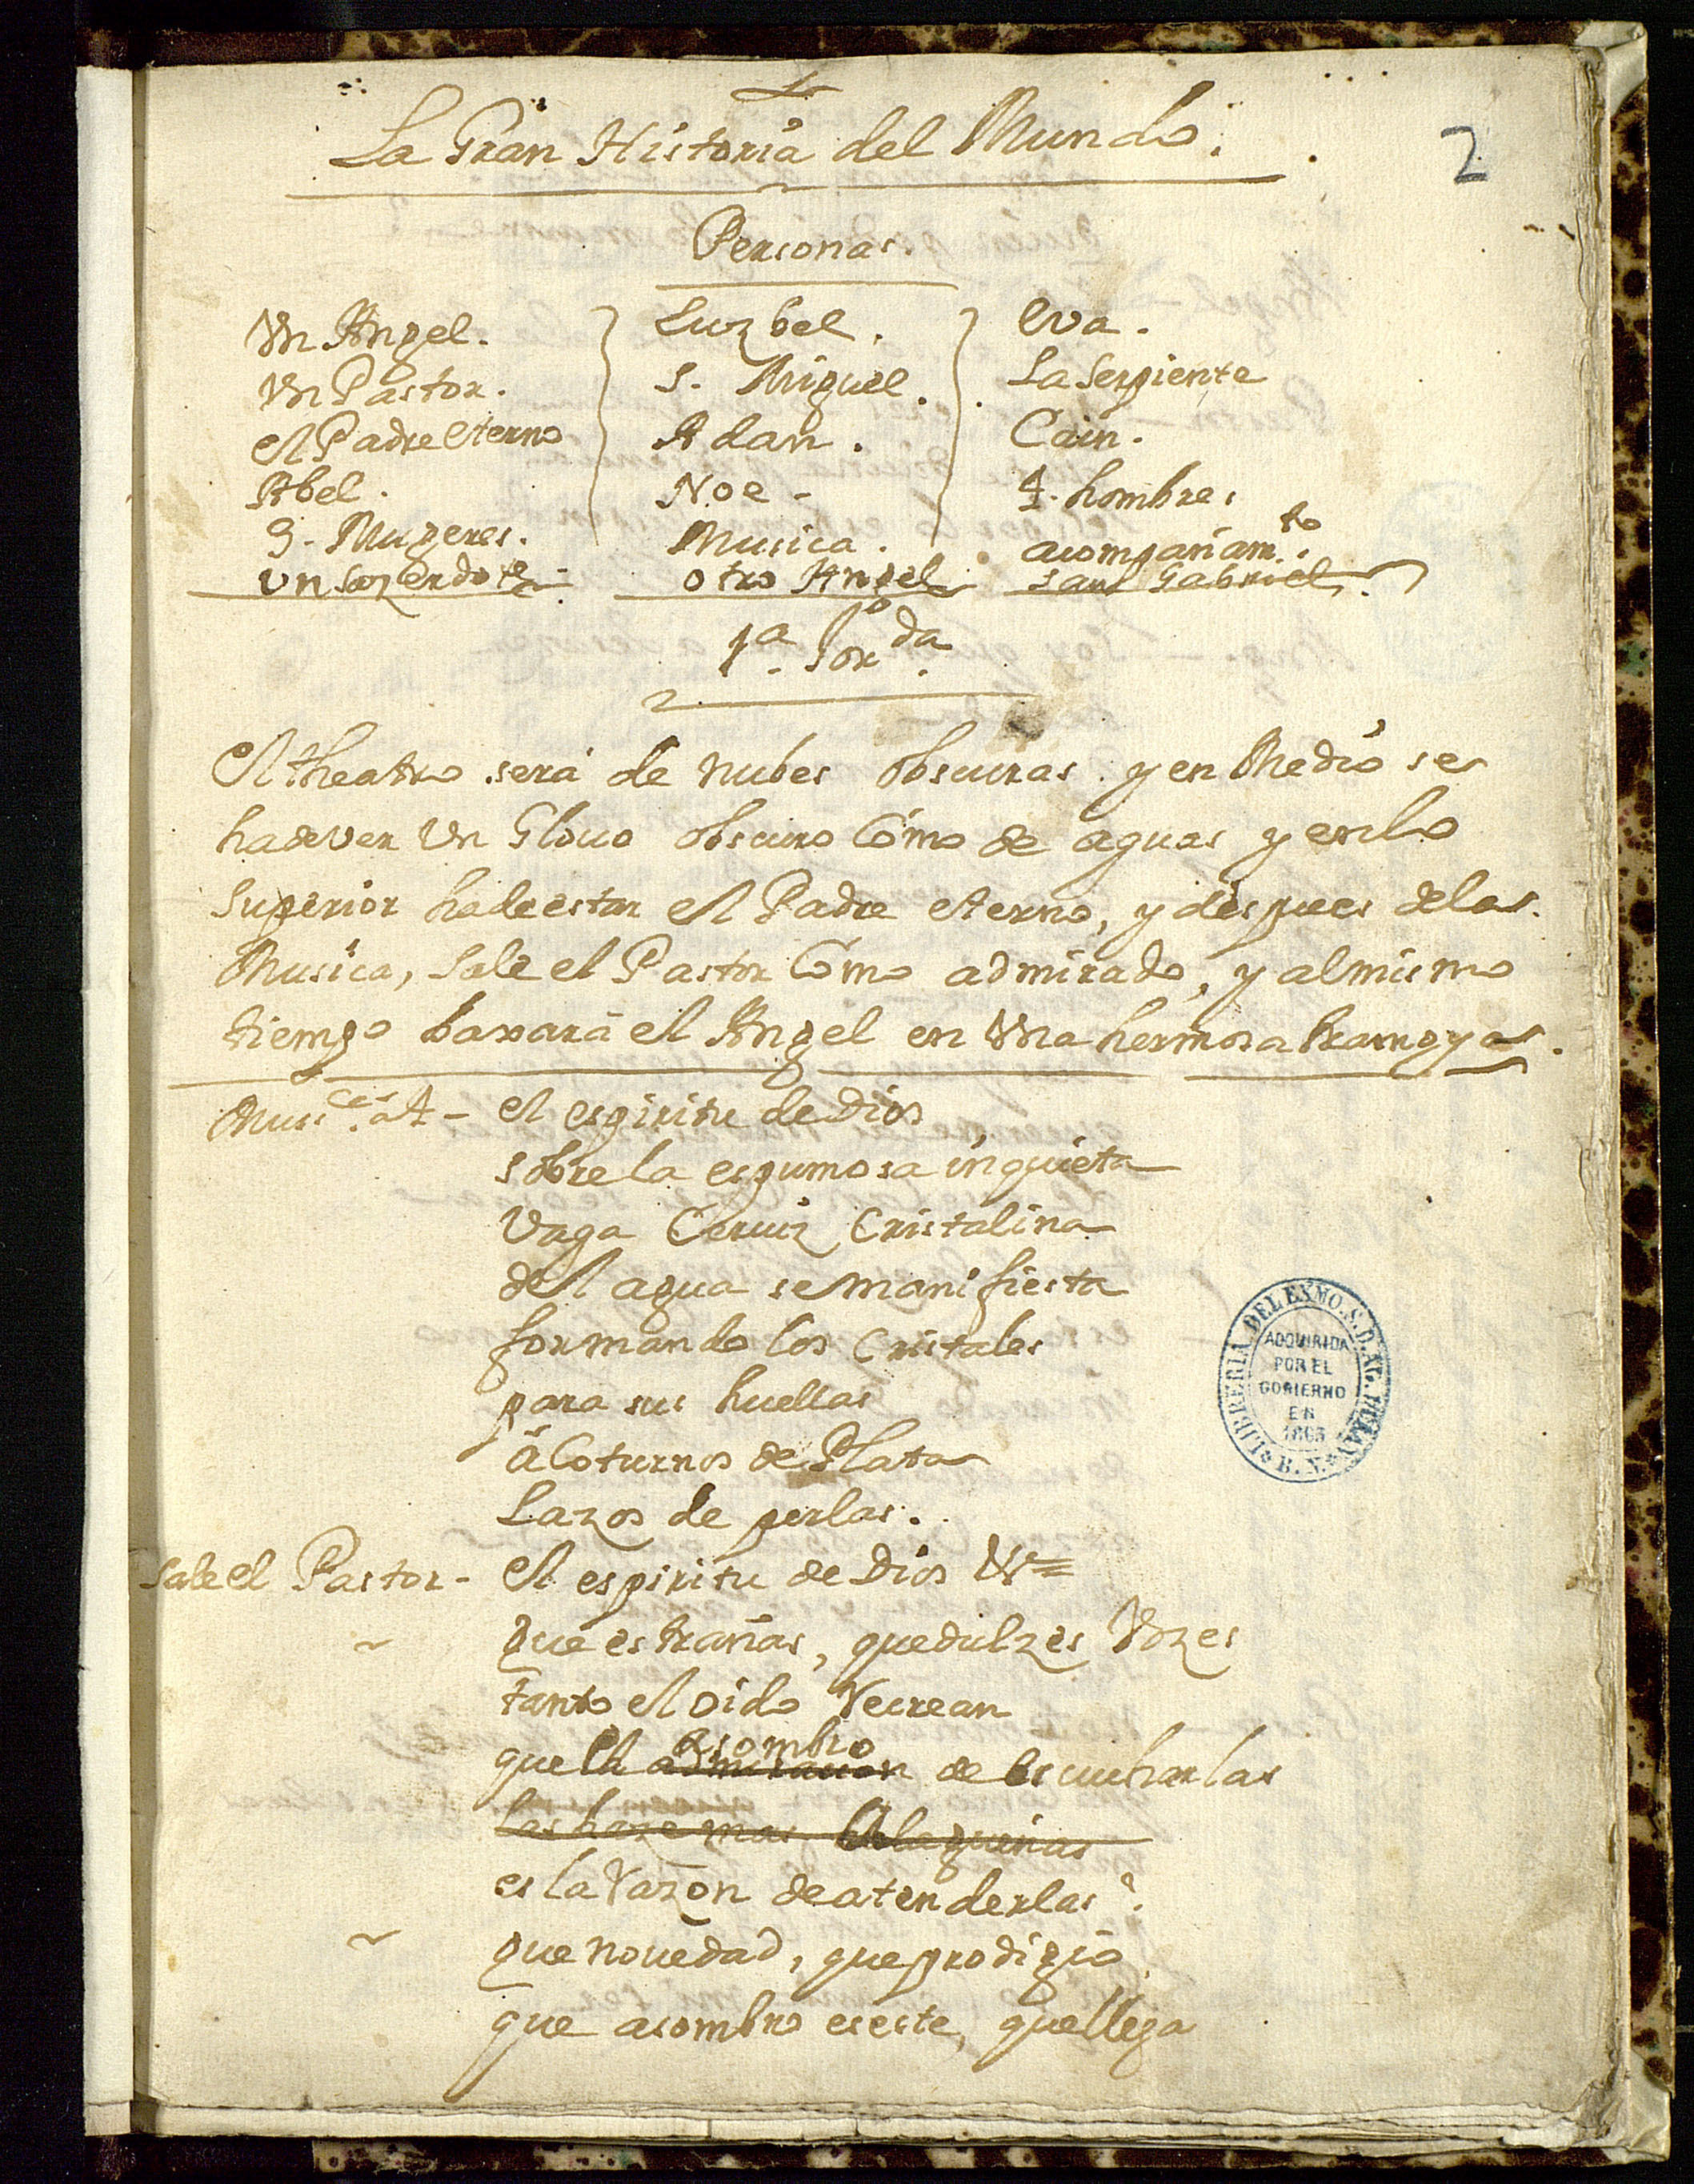 La Gran Historia del Mundo.
2
Personas.
Un Angel.
Un Pastor.
el Padre eterno
Abel.
3. Mugeres.
Un Sazerdote
Luzbel.
S. Miguel.
Adan.
Noe
Musica.
otro Angel
eva.
La Serpiente
Cain.
4. hombres
acompañam.to
San Gabriel
1.a Jor.da
el theatro será de nubes obscuras y en Medio se
ha de ver Un Glouo obscuro Como de aguas y en lo
Superior ha de estar el Padre eterno, y despues de la
Musica, Sale el Pastor Como admirado, y al mismo
tiempo baxará el Angel en Una hermosa tramoya.
Musi.ca a 4 - el espiritu de Dios
sobre la espumosa inquieta
Vaga Ceruiz Cristalina
del agua se manifiesta
formando los Cristales
para sus huellas
á Coturnos de Plata
Lazos de perlas.
Sale el Pastor - el espiritu de Dios &=
que estrañas, que dulzes Vozes
tanto el oido recrean
asombro
que el admiracion de escucharlas
las haze mas
es la razon de atenderlas?
que nouedad, que prodigio
que asombro es este, que llega
LIBRERIA DEL EXMO. S. D. AG. DURAN
ADQUIRIDA
POR EL
GOBIERNO
EN
1863
B. N.